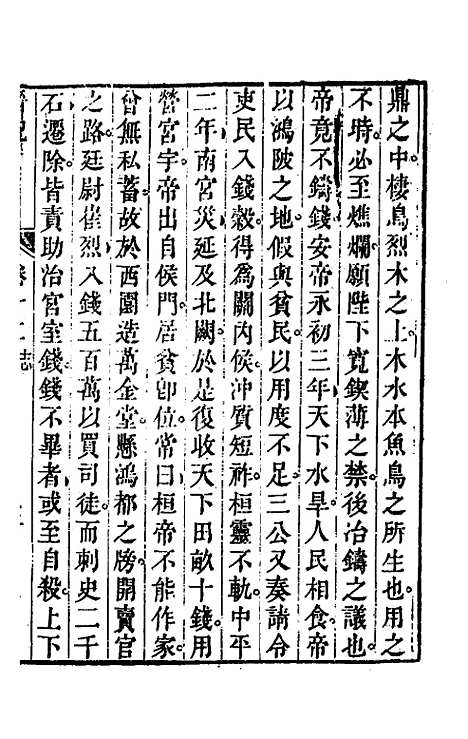 鼎之中棲鳥烈木之上木水本魚鳥之所生也用之
不時必至燋爛願陛下寬鍥薄之禁後冶鑄之議也
帝竟不鑄錢安帝永初三年天下水旱人民相食帝
以鴻陂之地假與貧民以用度不足三公又奏請令
吏民入錢穀得為關內侯沖質短祚桓靈不軌中平
二年南宮災延及北闕於是復收天下田畝十錢用
營宮宇帝出自侯門居貧卽位常曰桓帝不能作家
曾無私蓄故於西園造萬金堂懸鴻都之牓開賣官
之路廷尉崔烈入錢五百萬以買司徒而刺史二千
石遷除皆責助治宮室錢錢不畢者或至自殺上下
志